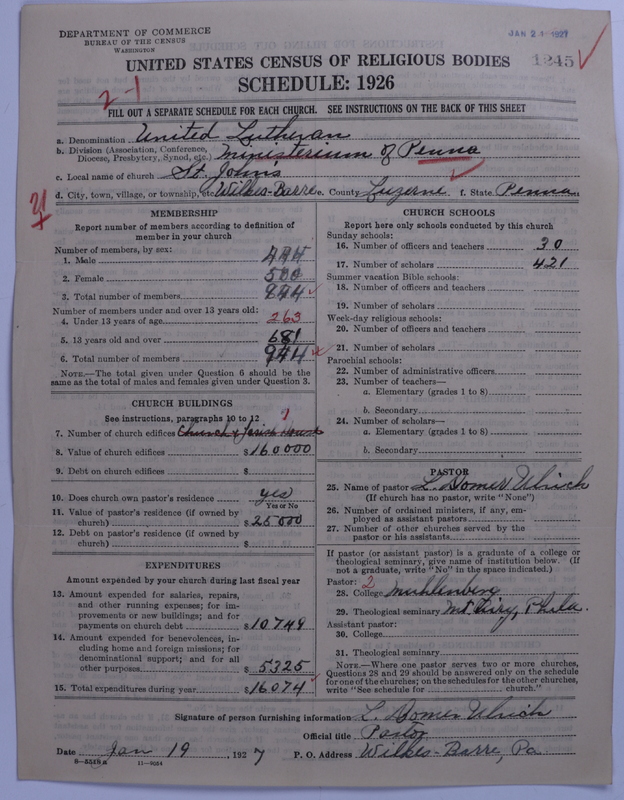 DEPARTMENT OF COMMERCE
BUREAU OF THE CENSUS
WASHINGTON
JAN 24 1927
1245
UNITED STATES CENSUS OF RELIGIOUS BODIES
SCHEDULE: 1926
2-1
FILL OUT A SEPARATE SCHEDULE FOR EACH CHURCH. SEE INSTRUCTIONS ON THE BACK OF THIS SHEET
a. Denomination United Lutheran
b. Division (Association, Conference, Diocese, Presbytery, Synod, etc.) Ministerium of Penna
c. Local name of church St. John's
d. City, town, village, or township, etc. Wilkes-Barre e. County Luzerne f. State Penna
MEMBERSHIP
Report number of members according to definition of
member in your church
Number of members, by sex:
1. Male 444
2. Female 500
3. Total number of members 944
Number of members under and over 13 years old:
4. Under 13 years of age 263
5. 13 years old and over 681
6. Total number of members 944
NOTE.—The total given under Question 6 should be the
same as the total of males and females given under Question 3.
CHURCH BUILDINGS
See instructions, paragraphs 10 to 12
7. Number of church edifices Church & Parish House 1
8. Value of church edifices $160000
9. Debt on church edifices $
10. Does church own pastor's residence yes
Yes or No
11. Value of pastor's residence (if owned by
church) $25000
12. Debt on pastor's residence (if owned by
church) $
EXPENDITURES
Amount expended by your church during last fiscal year
13. Amount expended for salaries, repairs,
and other running expenses; for im-
provements or new buildings; and for
payments on church debt $10749
14. Amount expended for benevolences, in-
cluding home and foreign missions; for
denominational support; and for all
other purposes $5325
15. Total expenditures during year $16074
CHURCH SCHOOLS
Report here only schools conducted by this church
Sunday schools:
16. Number of officers and teachers 30
17. Number of scholars 421
Summer vacation Bible schools:
18. Number of officers and teachers
19. Number of scholars
Week-day religious schools:
20. Number of officers and teachers
21. Number of scholars
Parochial schools:
22. Number of administrative officers
23. Number of teachers—
a. Elementary (grades 1 to 8)
b. Secondary
24. Number of scholars—
a. Elementary (grades 1 to 8)
b. Secondary
PASTOR
25. Name of pastor L. Domer Ulrich
(If church has no pastor, write "None")
26. Number of ordained ministers, if any, em-
ployed as assistant pastors
27. Number of other churches served by the
pastor or his assistants
If pastor (or assistant pastor) is a graduate of a college or
theological seminary, give name of institution below. (If
not a graduate, write "No" in the space indicated.)
Pastor: 2
28. College Muhlenberg
29. Theological seminary Mt Airy, Phila.
Assistant pastor:
30. College
31. Theological seminary
NOTE.—Where one pastor serves two or more churches,
Questions 28 and 29 should be answered only on the schedule
for one of the churches; on the schedules for the other churches,
write "See schedule for church."
Signature of person furnishing information L. Domer Ulrich
Official title Pastor
Date Jan 19, 1927 P. O. Address Wilkes-Barre, Pa.
8—5518a 11—9054